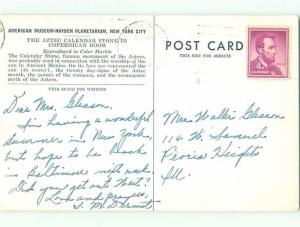 AMERICAN MUSEUM-HAYDEN PLANETARIUM, NEW YORK CITY
THE AZTEC CALENDAR STONE IN
COPERNICAN ROOM
Reproduced in Color Marble
The Calendar Stone, famous monument of the Aztecs,
was probably used in connection with the worship of the
sun in Ancient Mexico. On its face are represented the
sun (in center), the twenty day-signs of the Aztec
month, the points of the compass, and the encompassing
mythical universe.
THIS SPACE FOR WRITING
Dear Mrs. Gleason,
I'm having a wonderful
summer in New York,
but hope to be back
in Baltimore next week.
Did you get out West?
Love and prayers,
McDermot
POST CARD
THIS SIDE FOR ADDRESS
Mrs Walter Gleason
114 W. Samuel
Peoria Heights
Ill.